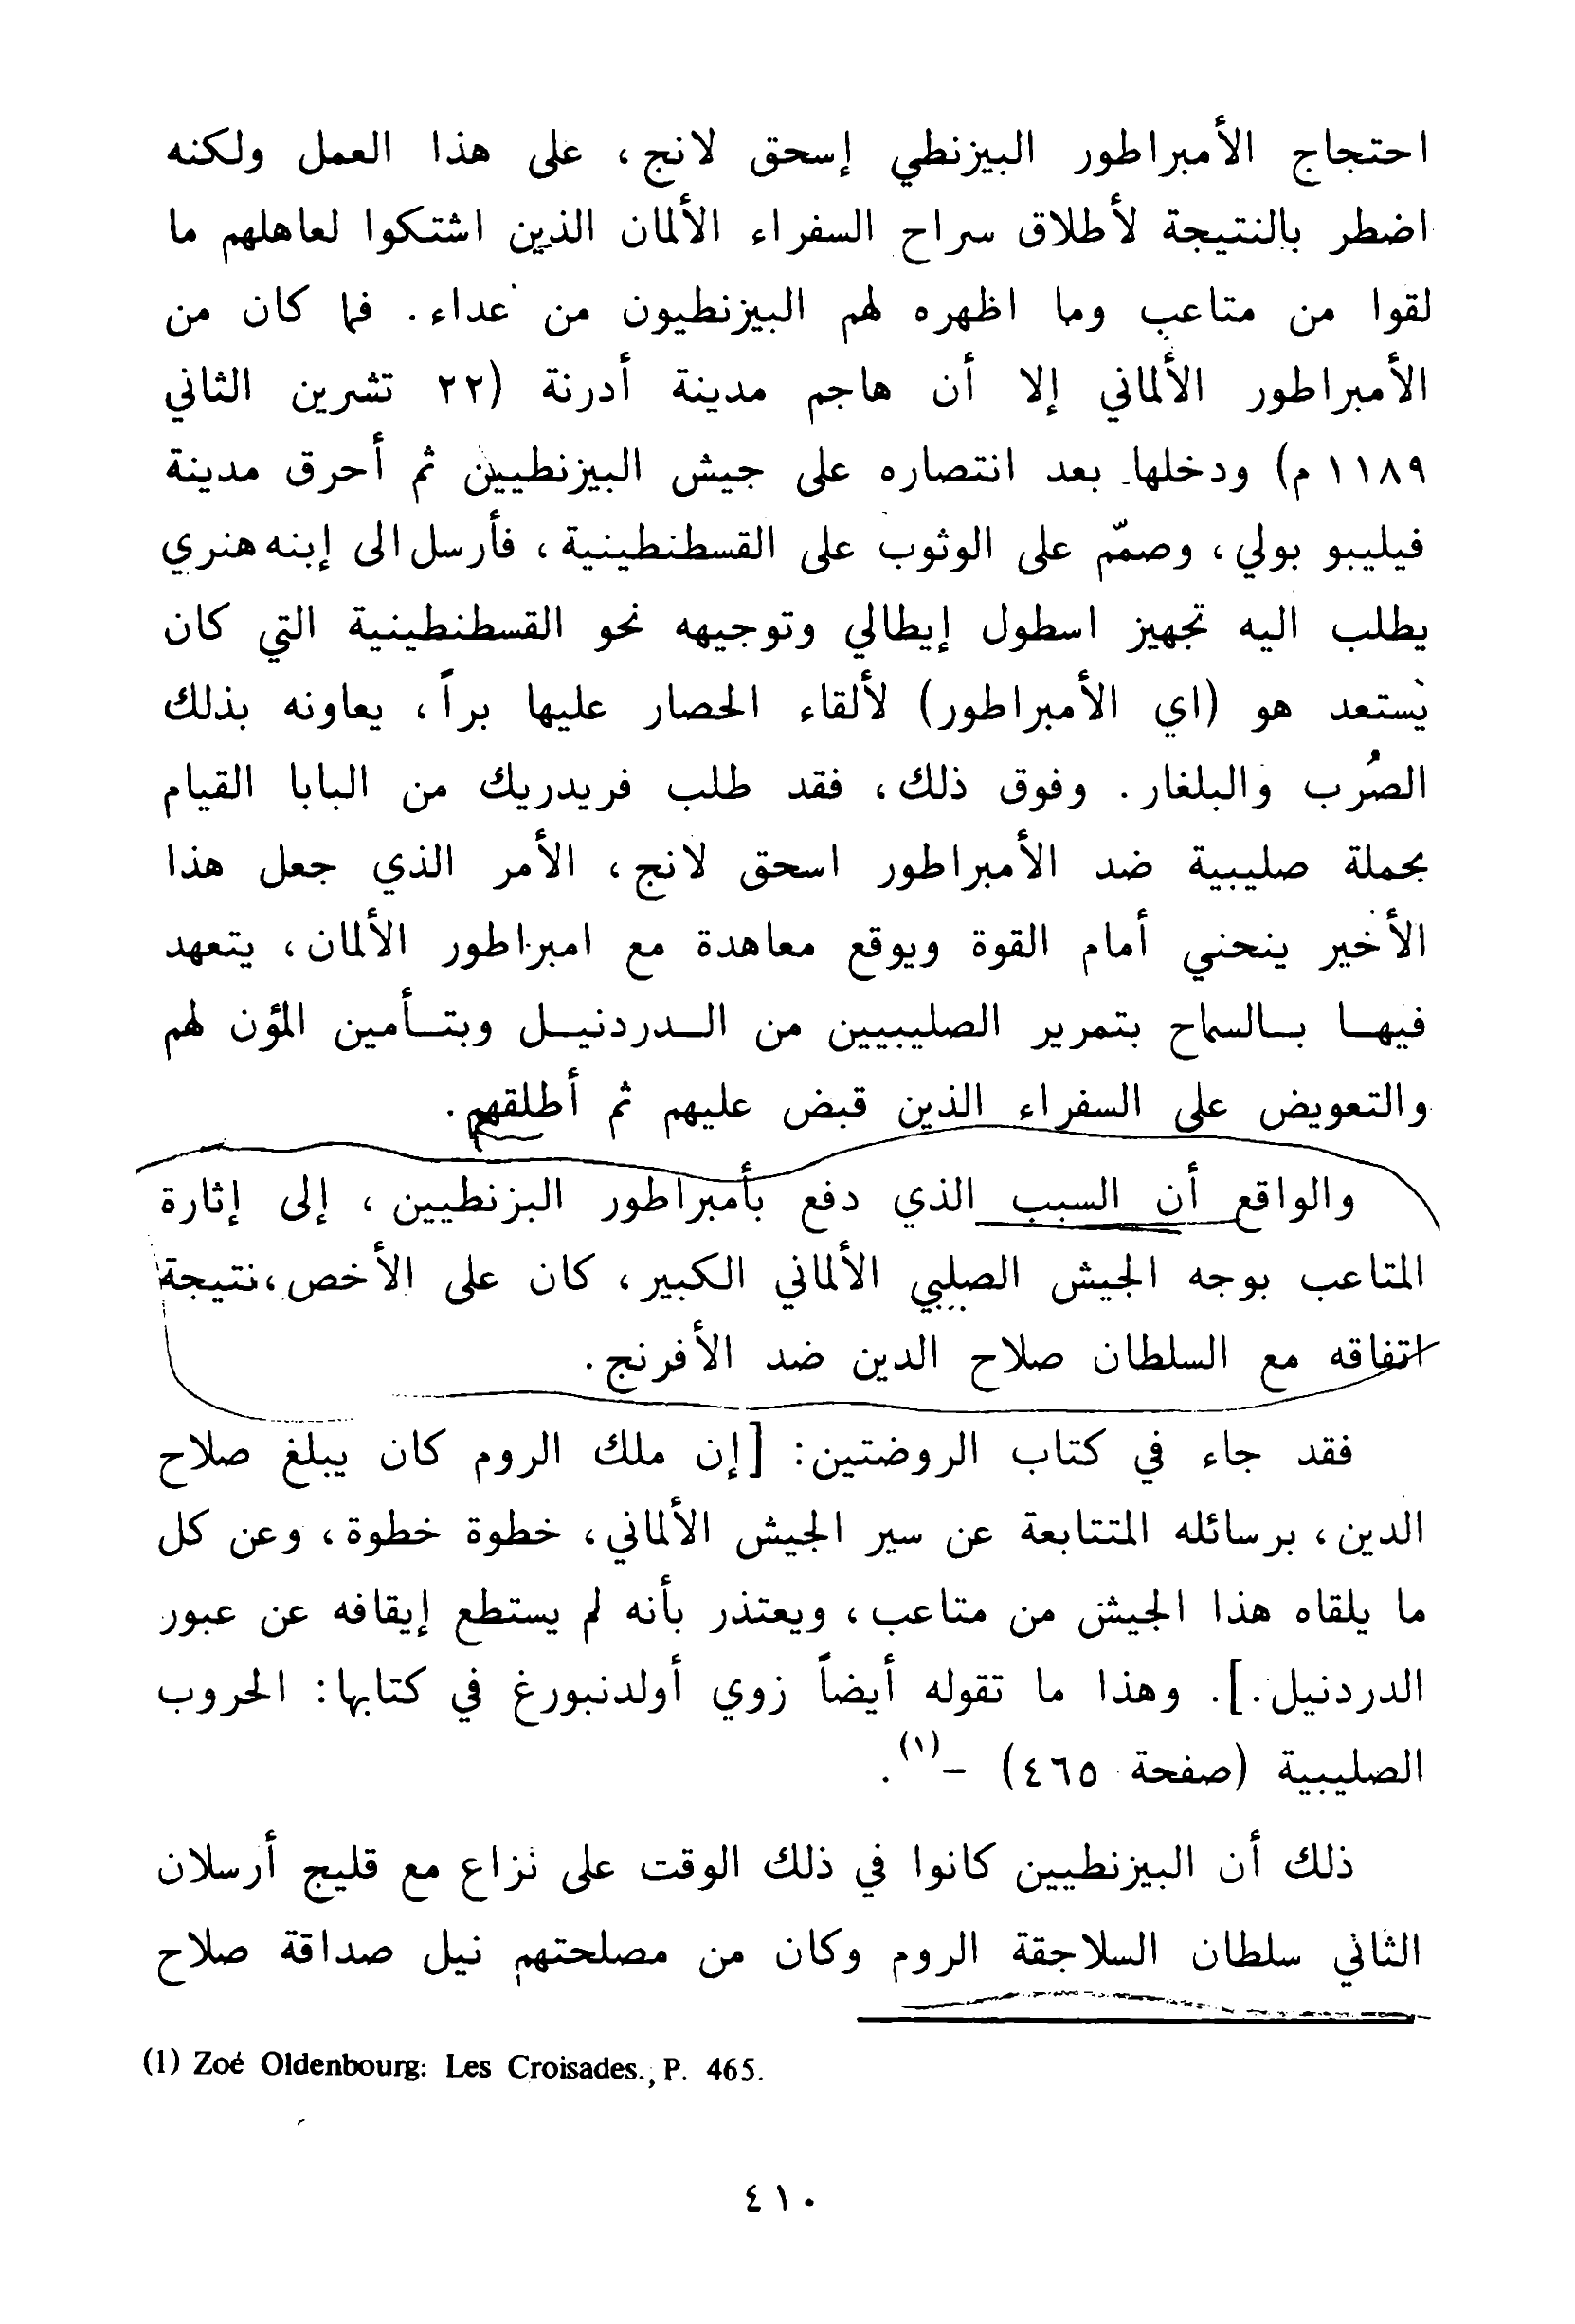 احتجاج الأمبراطور البيزنطي إسحق لانج، على هذا العمل ولكنه
اضطر بالنتيجة لأطلاق سراح السفراء الألمان الذين اشتكوا لعاهلهم ما
لقوا من متاعب وما اظهره لهم البيزنطيون من عداء. فما كان من
الأمبراطور الألماني إلا أن هاجم مدينة أدرنة (٢٢ تشرين الثاني
١١٨٩ م) ودخلها بعد انتصاره على جيش البيزنطيين ثم أحرق مدينة
فيليبو بولي، وصمّم على الوثوب على القسطنطينية، فأرسل الى إبنه هنري
يطلب اليه تجهيز اسطول إيطالي وتوجيهه نحو القسطنطينية التي كان
يستعد هو (اي الأمبراطور) لألقاء الحصار عليها براً، يعاونه بذلك
الصُرب والبلغار. وفوق ذلك، فقد طلب فريدريك من البابا القيام
بحملة صليبية ضد الأمبراطور اسحق لانج، الأمر الذي جعل هذا
الأخير ينحني أمام القوة ويوقع معاهدة مع امبراطور الألمان، يتعهد
فيهــا بــالسماح بتمرير الصليبيين من الــدردنيــل وبتــأمين المؤن لهم
والتعويض على السفراء الذين قبض عليهم ثم أطلقهم.
والواقع أن السبب الذي دفع بأمبراطور البزنطيين، إلى إثارة
المتاعب بوجه الجيش الصليبي الألماني الكبير، كان على الأخص، نتيجة
اتفاقه مع السلطان صلاح الدين ضد الأفرنج.
فقد جاء في كتاب الروضتين: [إن ملك الروم كان يبلغ صلاح
الدين، برسائله المتتابعة عن سير الجيش الألماني، خطوة خطوة، وعن كل
ما يلقاه هذا الجيش من متاعب، ويعتذر بأنه لم يستطع إيقافه عن عبور
الدردنيل.]. وهذا ما تقوله أيضاً زوي أولدنبورغ في كتابها: الحروب
الصليبية (صفحة ٤٦٥) –(١).
ذلك أن البيزنطيين كانوا في ذلك الوقت على نزاع مع قليج أرسلان
الثاني سلطان السلاجقة الروم وكان من مصلحتهم نيل صداقة صلاح
(1) Zoé Oldenbourg: Les Croisades., P. 465.
٤١٠